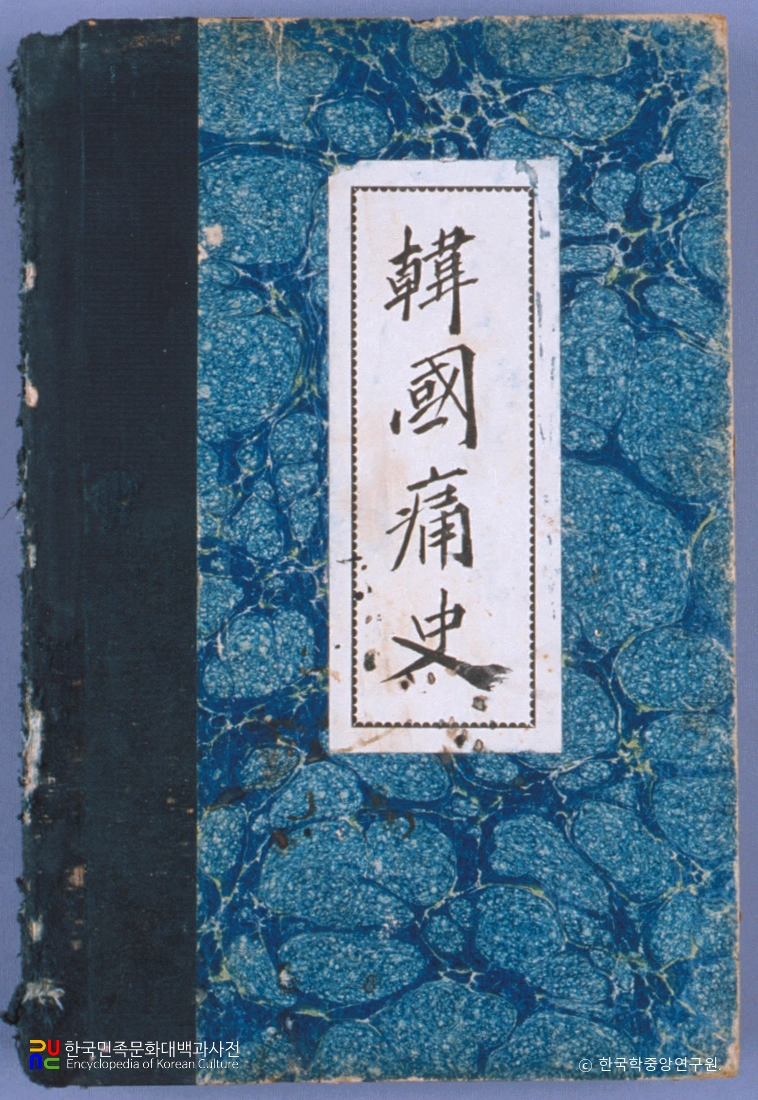 韓國痛史
한국민족문화대백과사전
Encyclopedia of Korean Culture
© 한국학중앙연구원